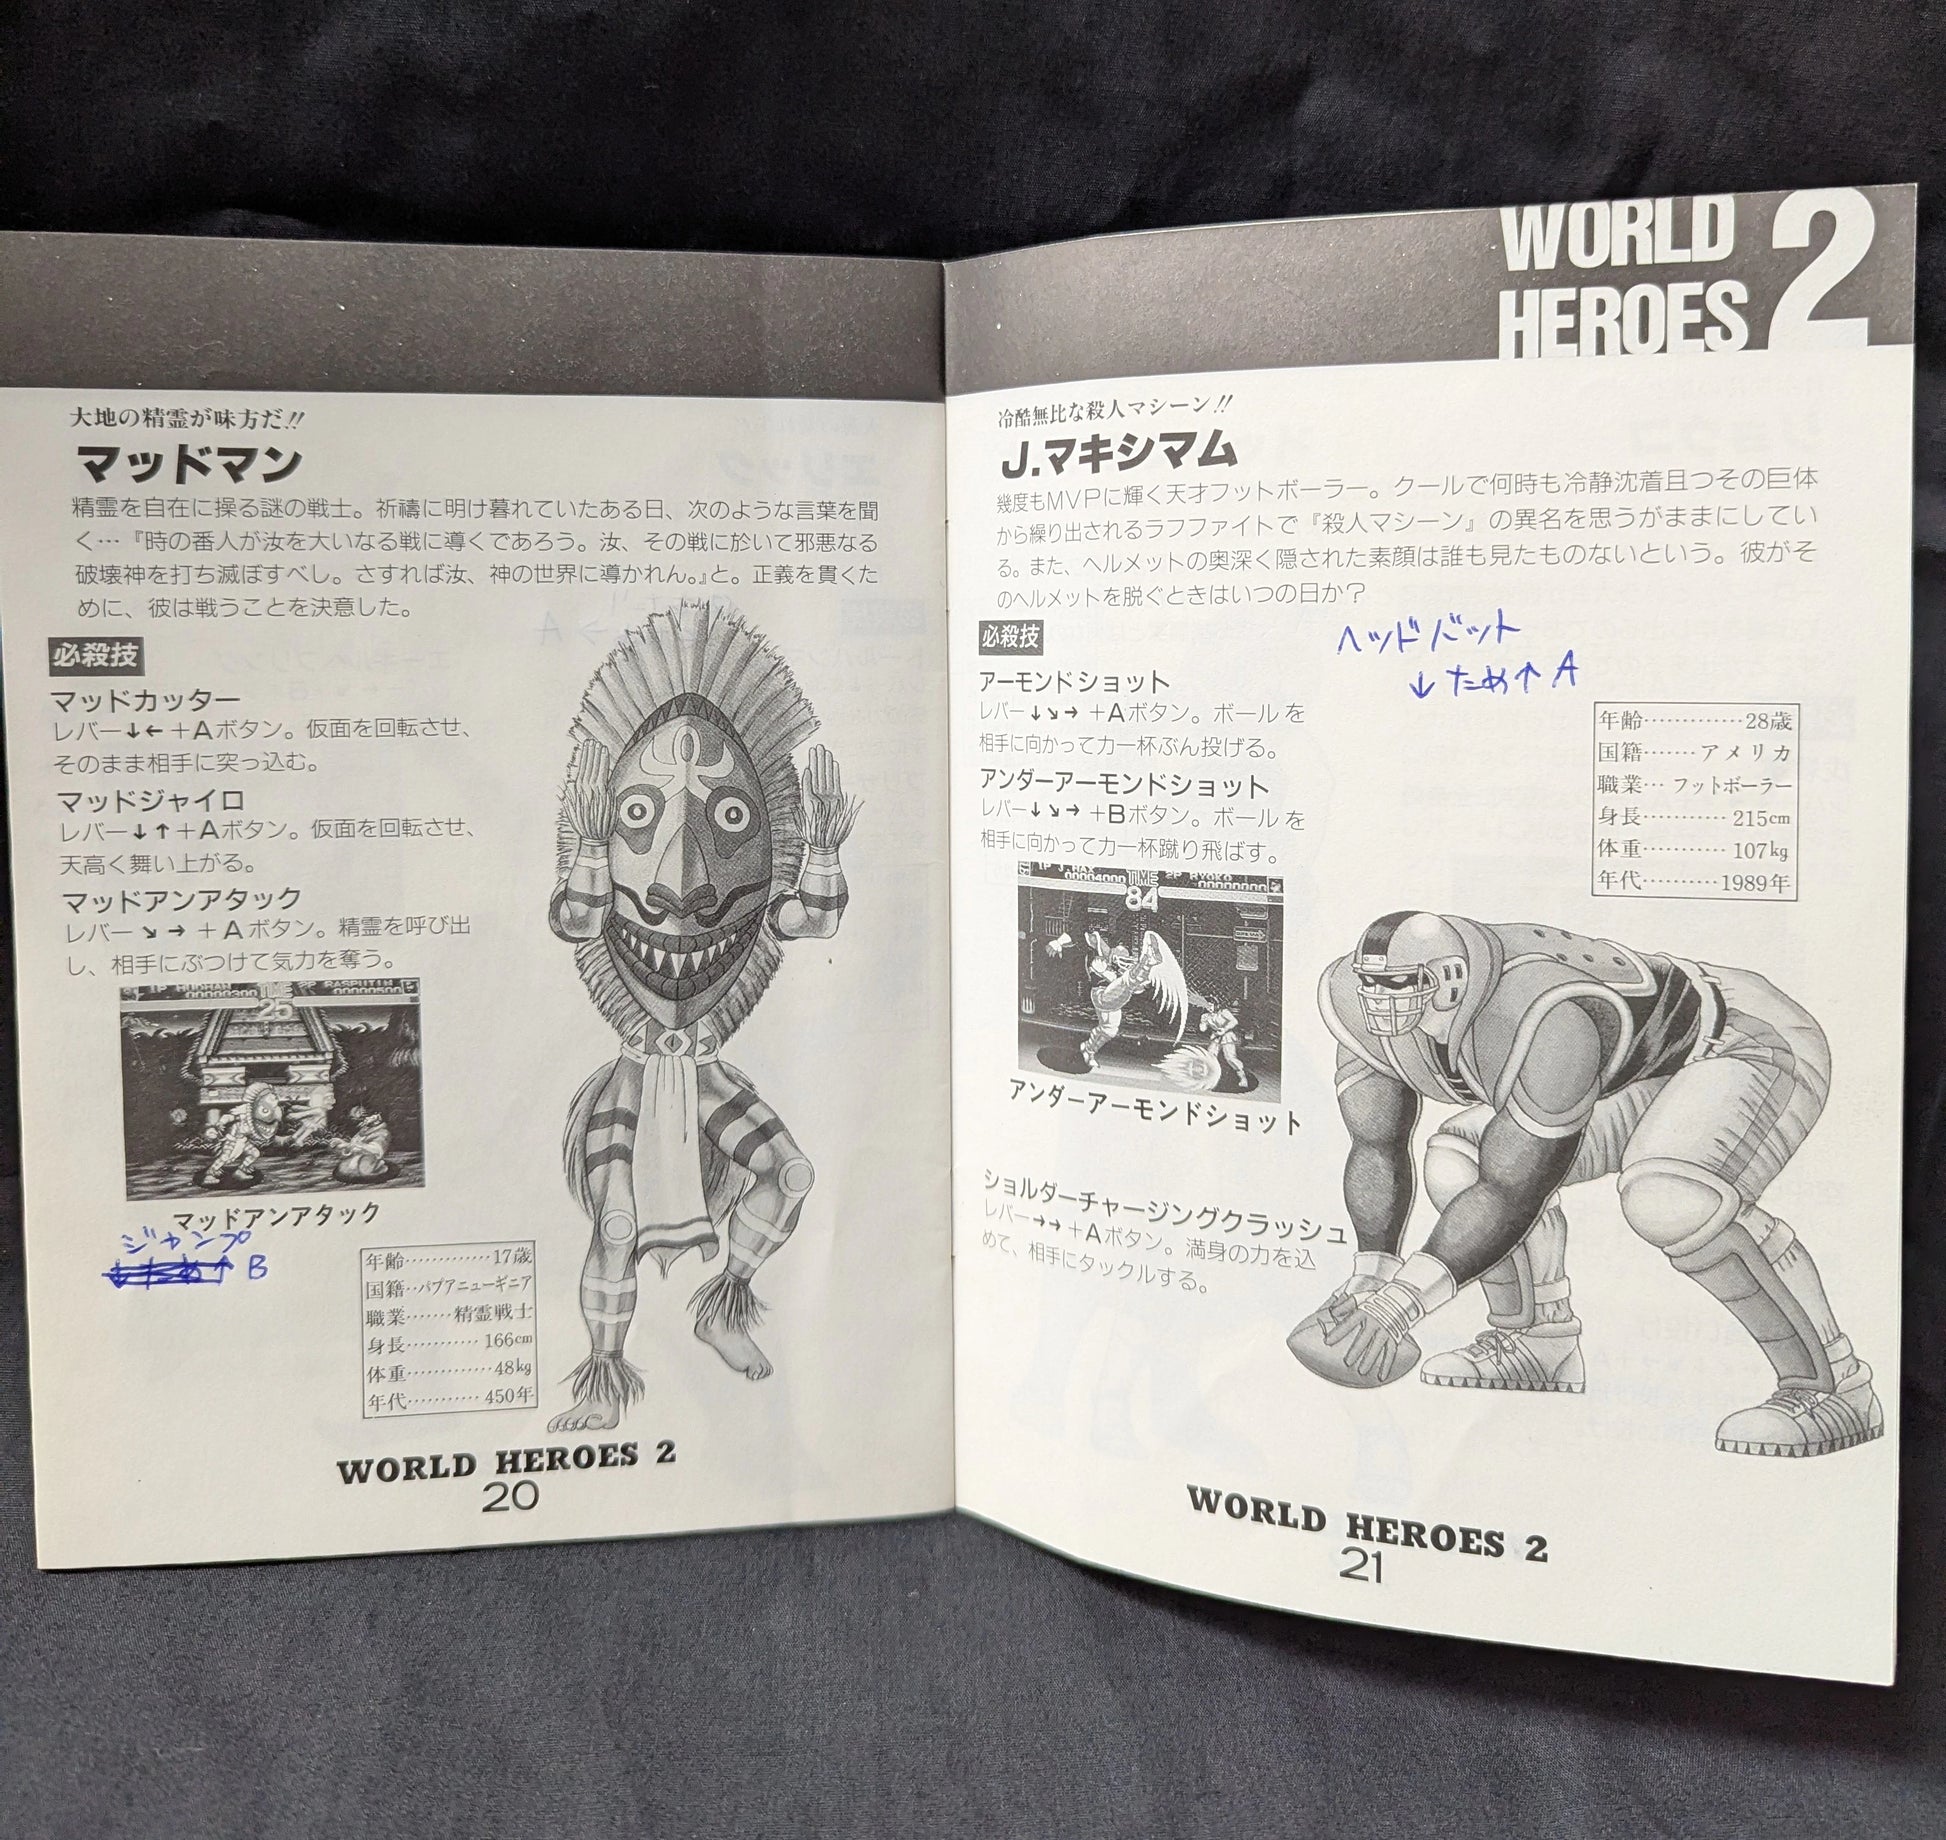 大地の精霊が味方だ!!
マッドマン
精霊を自在に操る謎の戦士。祈禱に明け暮れていたある日、次のような言葉を聞
く…『時の番人が汝を大いなる戦に導くであろう。汝、その戦に於いて邪悪なる
破壊神を打ち滅ぼすべし。さすれば汝、神の世界に導かれん。』と。正義を貫くた
めに、彼は戦うことを決意した。
必殺技
マッドカッター
レバー↓←+Aボタン。仮面を回転させ、
そのまま相手に突っ込む。
マッドジャイロ
レバー↓↑+Aボタン。仮面を回転させ、
天高く舞い上がる。
マッドアンアタック
レバー↘→+Aボタン。精霊を呼び出
し、相手にぶつけて気力を奪う。
1P MUDMAN TIME 2P RASPUTIN
25
マッドアンアタック
ジャンプ
↓ため↑ B
年齢…………17歳
国籍‥パプアニューギニア
職業……精霊戦士
身長………166cm
体重…………48kg
年代………450年
WORLD HEROES 2
20
WORLD
HEROES 2
冷酷無比な殺人マシーン!!
J.マキシマム
幾度もMVPに輝く天才フットボーラー。クールで何時も冷静沈着且つその巨体
から繰り出されるラフファイトで『殺人マシーン』の異名を思うがままにしてい
る。また、ヘルメットの奥深く隠された素顔は誰も見たものないという。彼がそ
のヘルメットを脱ぐときはいつの日か?
ヘッドバット
↓ため↑A
必殺技
アーモンドショット
レバー↓↘→+Aボタン。ボールを
相手に向かって力一杯ぶん投げる。
アンダーアーモンドショット
レバー↓↘→+Bボタン。ボールを
相手に向かって力一杯蹴り飛ばす。
1P J.MAX TIME 2P RYOKO
0004000 84 00000000
アンダーアーモンドショット
ショルダーチャージングクラッシュ
レバー→→+Aボタン。満身の力を込
めて、相手にタックルする。
年齢…………28歳
国籍……アメリカ
職業…フットボーラー
身長………215cm
体重………107kg
年代………1989年
WORLD HEROES 2
21